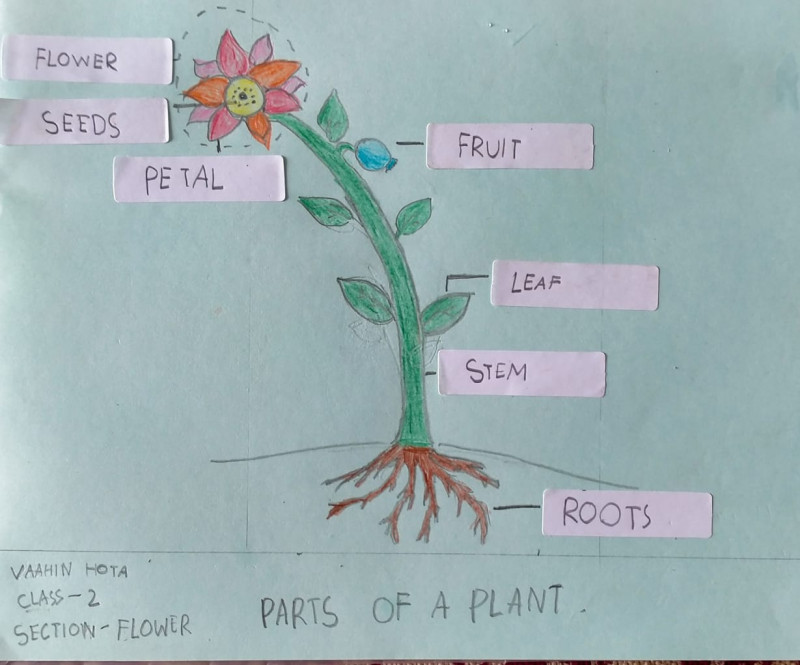 FLOWER
SEEDS
PETAL
FRUIT
LEAF
STEM
ROOTS
VAAHIN HOTA
CLASS-2
SECTION-FLOWER
PARTS OF A PLANT.